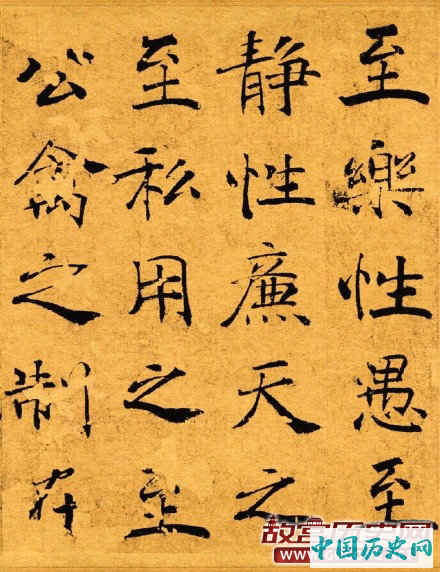 至樂性愚至
静性廉天之
至私用之至
公禽之制在
中国历史网